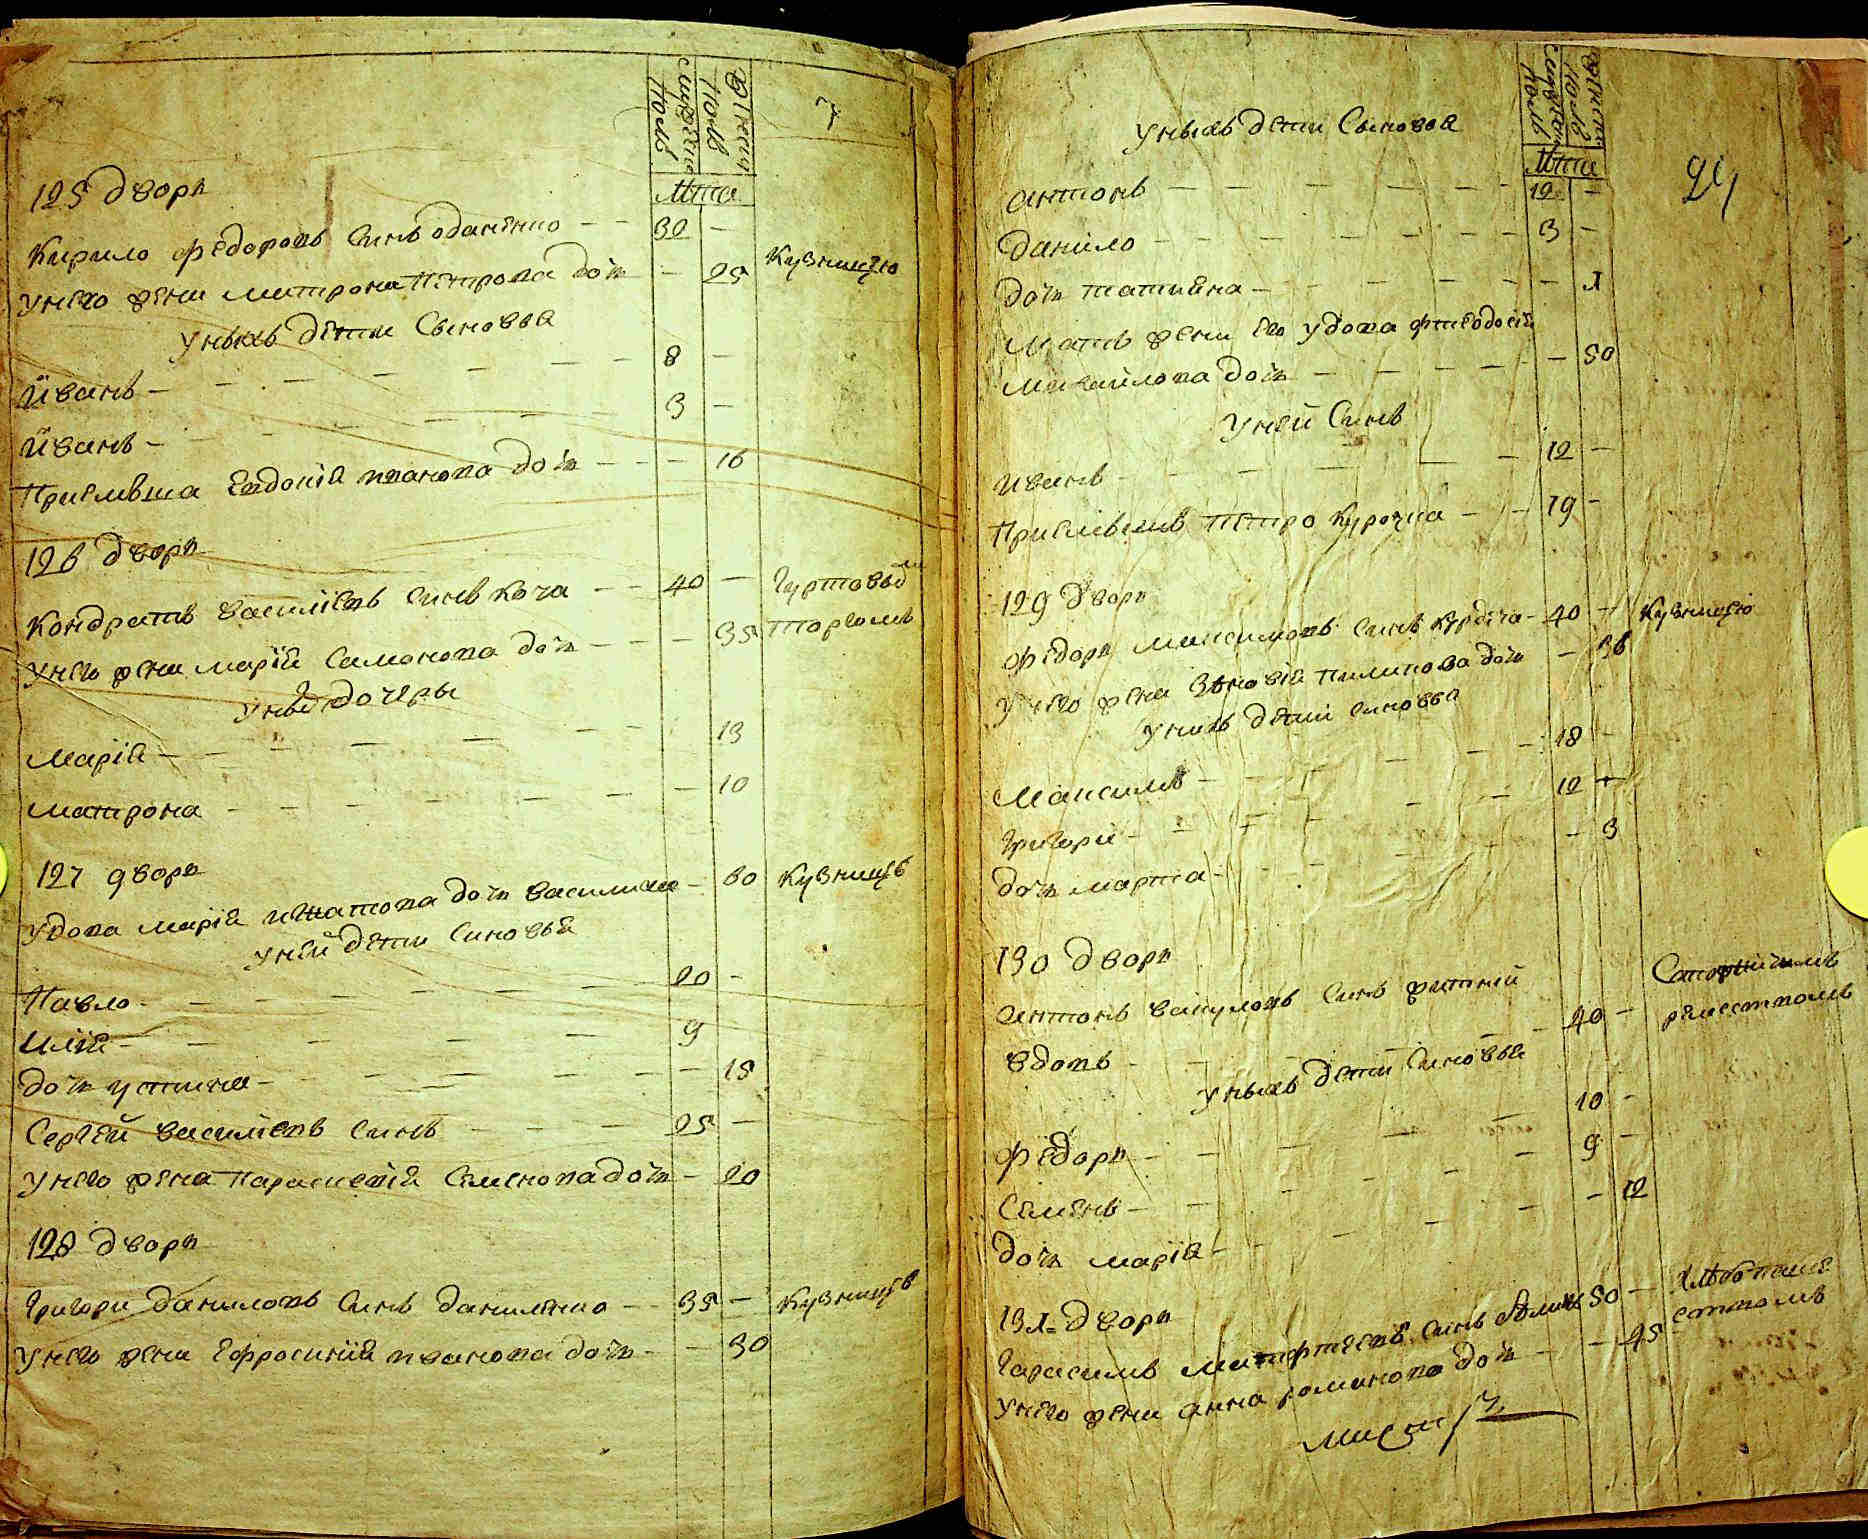 мужеска
полъ
женска
полъ
Лѣта
125 дворъ
Кирило Федоровъ синъ Оданенко — — 30 —
Кузницею
У него жена Матрона Петрова дочь — 25
У ныхъ дети сыновья
Иванъ — 8 —
Иванъ — 3 —
Приемыша Евдокия Иванова дочь — — 16
126 дворъ
Кондратъ Василіевъ синъ Коча — — 40 —
Гуртовый
торгомъ
У него жена Марія Самонова дочь — — 35
У ный дочеры
Марія — 13
Матрона — 10
127 дворъ
Удова Марія дочь — 60 Кузницъ
У ней дети синовья
Павло — 20 —
Илія — 9
дочь Устина — 18
Сергѣй Василіевъ синъ — 25 —
У него жена Параскевія Семенова дочь — 20
128 дворъ
Григори Даниловъ синъ Даниленко — 35 — Кузницъ
У него жена Ефросинія Иванова дочь — — 30
У ныхъ дети сыновья
Лѣта
24
Антонъ — 12 —
Данило — 3 —
дочь Татияна — 1
Мать жены его удова Фтеодосія
Михайлова дочь — 50
У ней синъ
Иванъ — 12 —
Приемышъ Петро Курочка — 19 —
129 дворъ
Федоръ Максимовъ синъ — 40 — Кузницею
У него жена Зѣновія Пилипова дочь — 36
У нихъ дети синовья
Максимъ — 18 —
12
Григори —
дочь Марта — 3
130 дворъ
Антонъ Вакуловъ синъ
вдовъ — 40 —
ремествомъ
У ныхъ дети синовья
Федоръ — 10 —
Семенъ — 9 —
дочь Марія — 12
131 дворъ
Гарасимъ синъ 50 —
У него жена Анна Романова дочь — 45